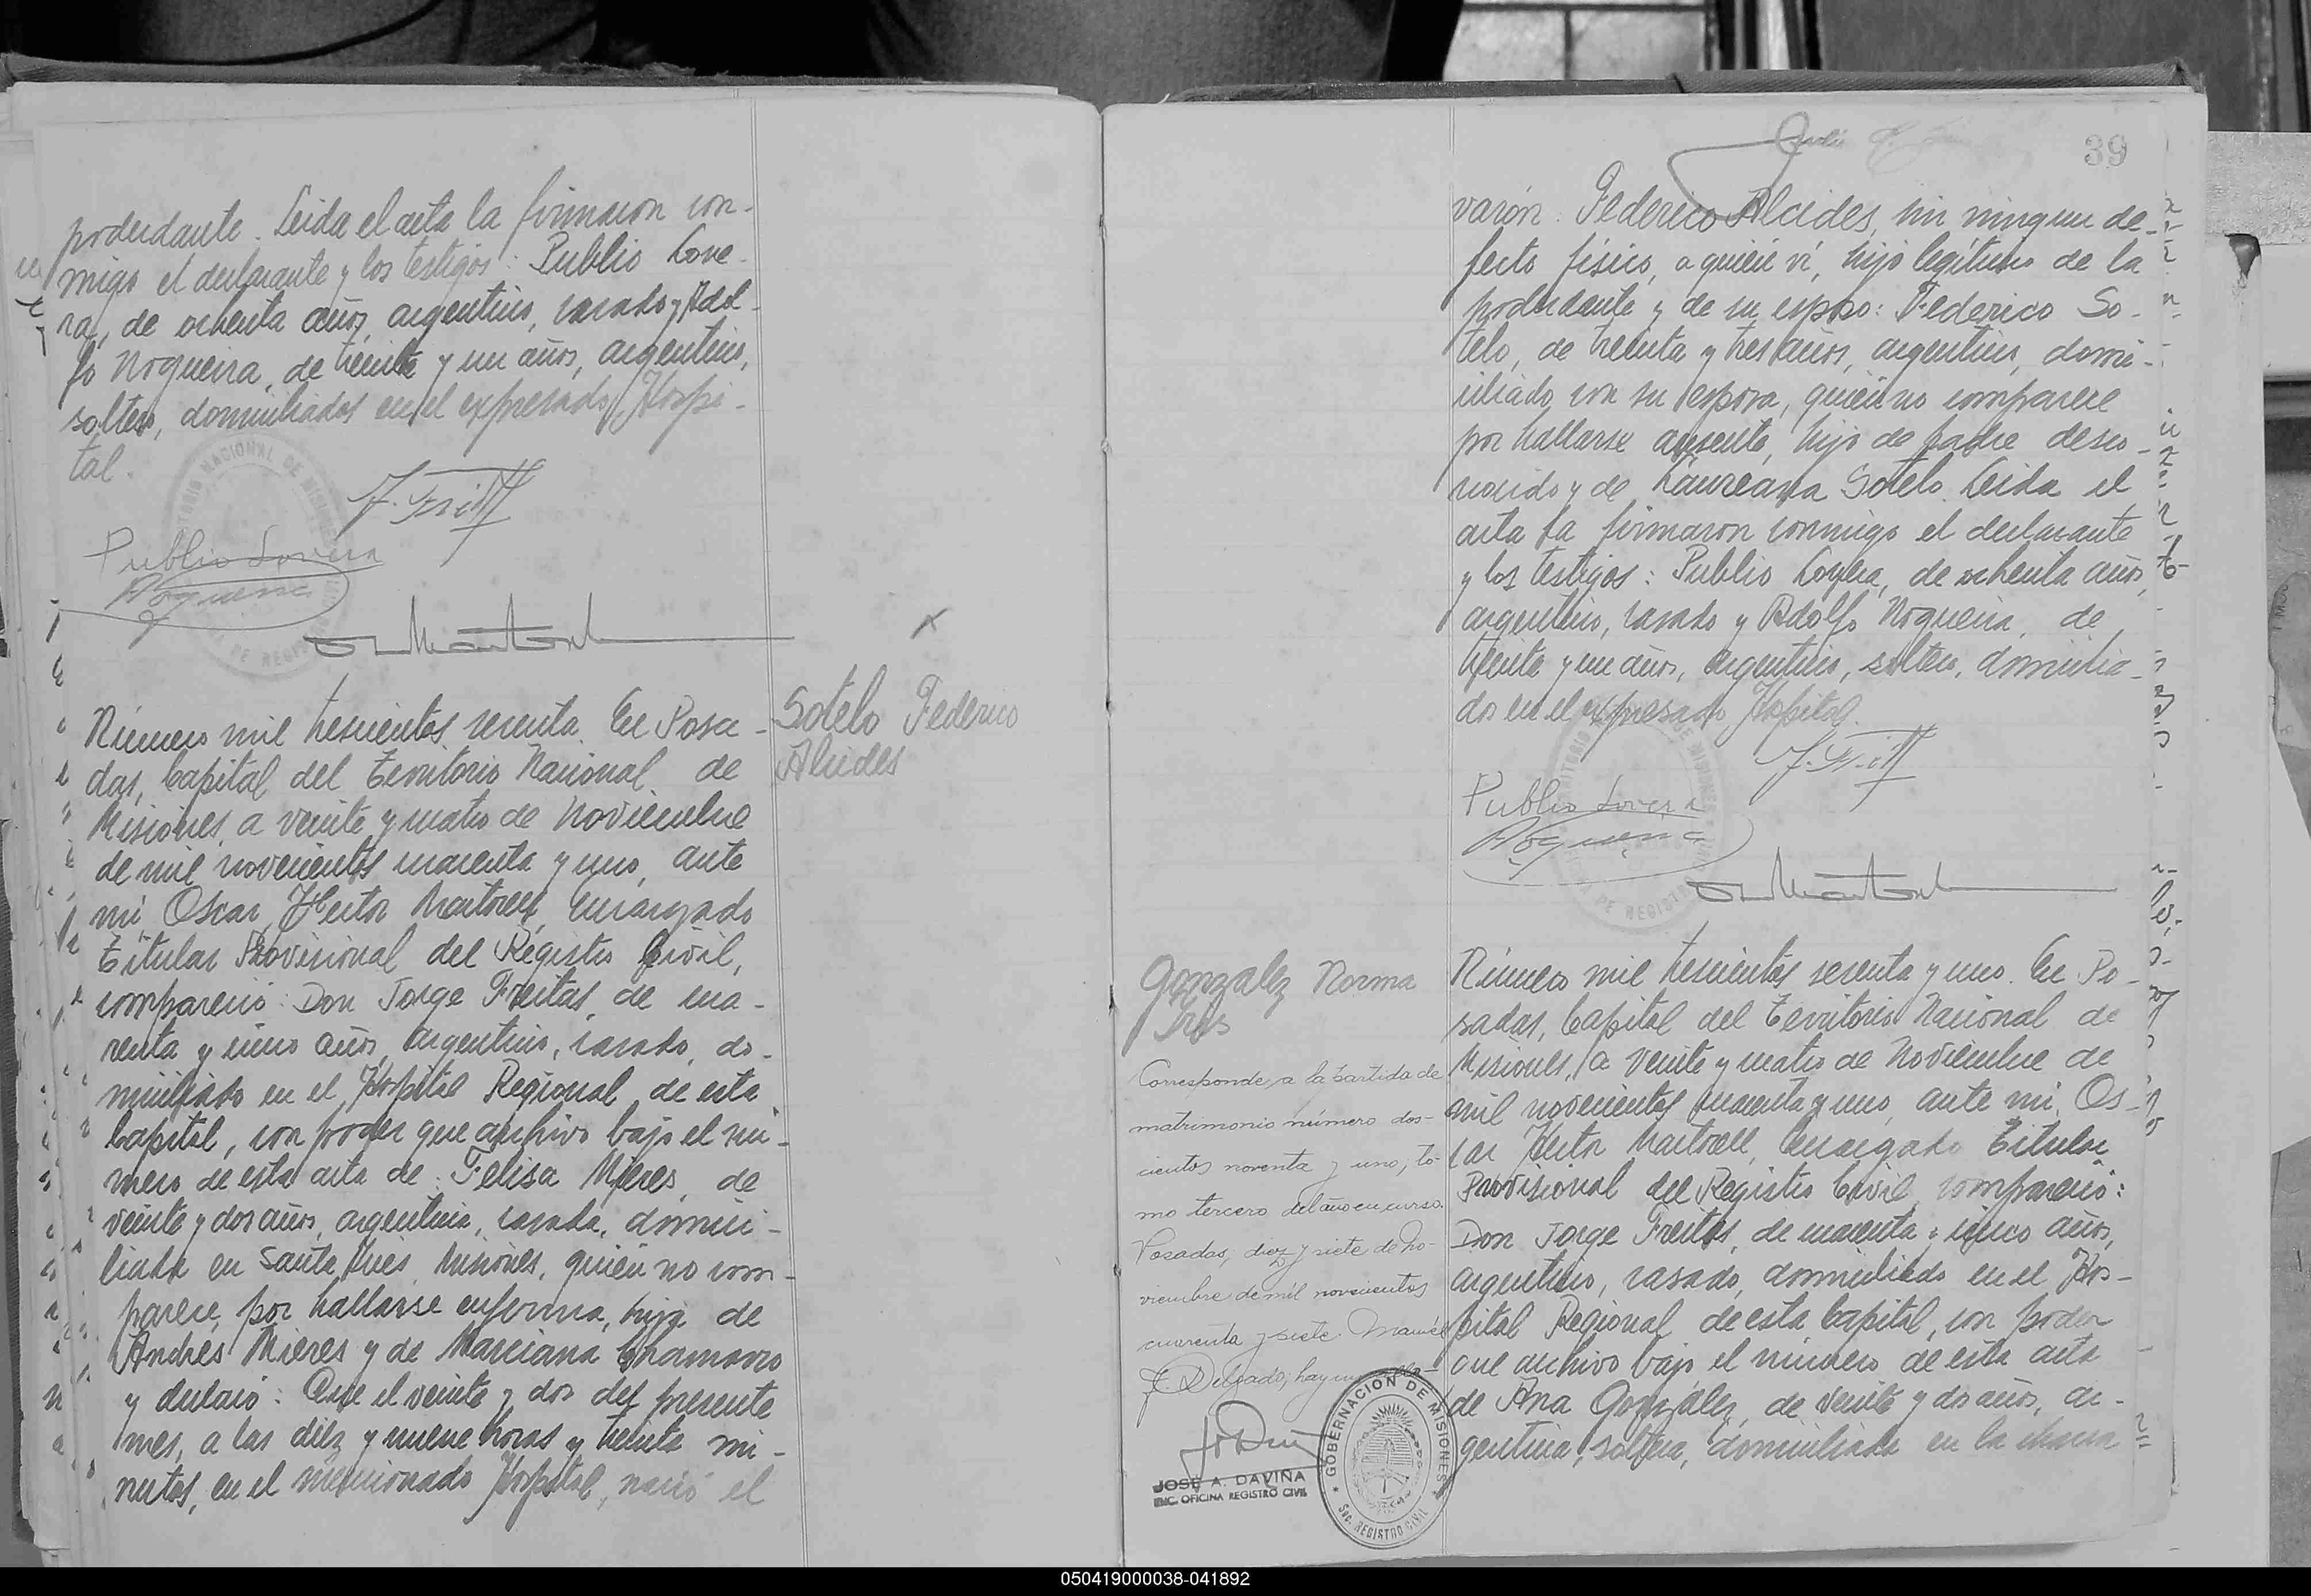 poderdante. Leida el acta la firmaron con-
migo el declarante y los testigos: Publio Love-
ra, de ochenta años, argentino, casado y Adol-
fo Nogueira, de treinta y un años, argentino,
soltero, domiciliados en el expresado Hospi-
tal.
J. Freit
Publio Lovera
Nogueira
Número mil trescientos sesenta. En Posa-
das, Capital del Territorio Nacional de
Misiones, a veinte y cuatro de Noviembre
de mil novecientos cuarenta y uno, ante
mí, Oscar Hector Martorell, Encargado
Titular Provisional del Registro Civil,
compareció: Don Jorge Freitas, de cua-
renta y cinco años, argentino, casado, do-
miciliado en el Hospital Regional de esta
Capital, con poder que archivo bajo el nú-
mero de esta acta de: Felisa Mieres, de
veinte y dos años, argentina, casada, domici-
liada en Santa Inés, Misiones, quién no com-
parece por hallarse enferma, hija de
Andrés Mieres y de Marciana Chamorro
y declaró: Que el veinte y dos del presente
mes, a las diez y nueve horas y treinta mi-
nutos, en el mencionado Hospital, nació el
Sotelo Federico
Alcides
39
varón: Federico Alcides, sin ningun de-
fecto físico, a quién ví, hijo legítimo de la
poderdante y de su esposo: Federico So-
telo, de treinta y tres años, argentino, domi-
ciliado con su esposa, quién no comparece
por hallarse ausente, hijo de padre desco-
nocido y de Laureana Sotelo. Leida el
acta la firmaron conmigo el declarante
y los testigos: Publio Lovera, de ochenta años,
argentino, casado y Adolfo Nogueira, de
treinta y un años, argentino, soltero, domicilia-
dos en el expresado Hospital.
J. Freit
Publio Lovera
Nogueira
Gonzalez Norma
Iris
Corresponde a la partida de
matrimonio número dos-
cientos noventa y uno, to-
mo tercero del año en curso.
Posadas, diez y siete de no-
viembre de mil novecientos
cuarenta y siete. Manuel
J. Delgado; hay un sello-
JOSÉ A. DAVIÑA
ENC. OFICINA REGISTRO CIVIL
GOBERNACION DE MISIONES
Sec. REGISTRO CIVIL
Número mil trescientos sesenta y uno. En Po-
sadas, Capital del Territorio Nacional de
Misiones, a veinte y cuatro de Noviembre de
mil novecientos cuarenta y uno, ante mí, Os-
car Hector Martorell, Encargado Titular
Provisional del Registro Civil, compareció:
Don Jorge Freitas, de cuarenta y cinco años,
argentino, casado, domiciliado en el Hos-
pital Regional de esta Capital, con poder
que archivo bajo el número de esta acta
de Ana González, de veinte y dos años, ar-
gentina, soltera, domiciliada en la chacra
050419000038-041892